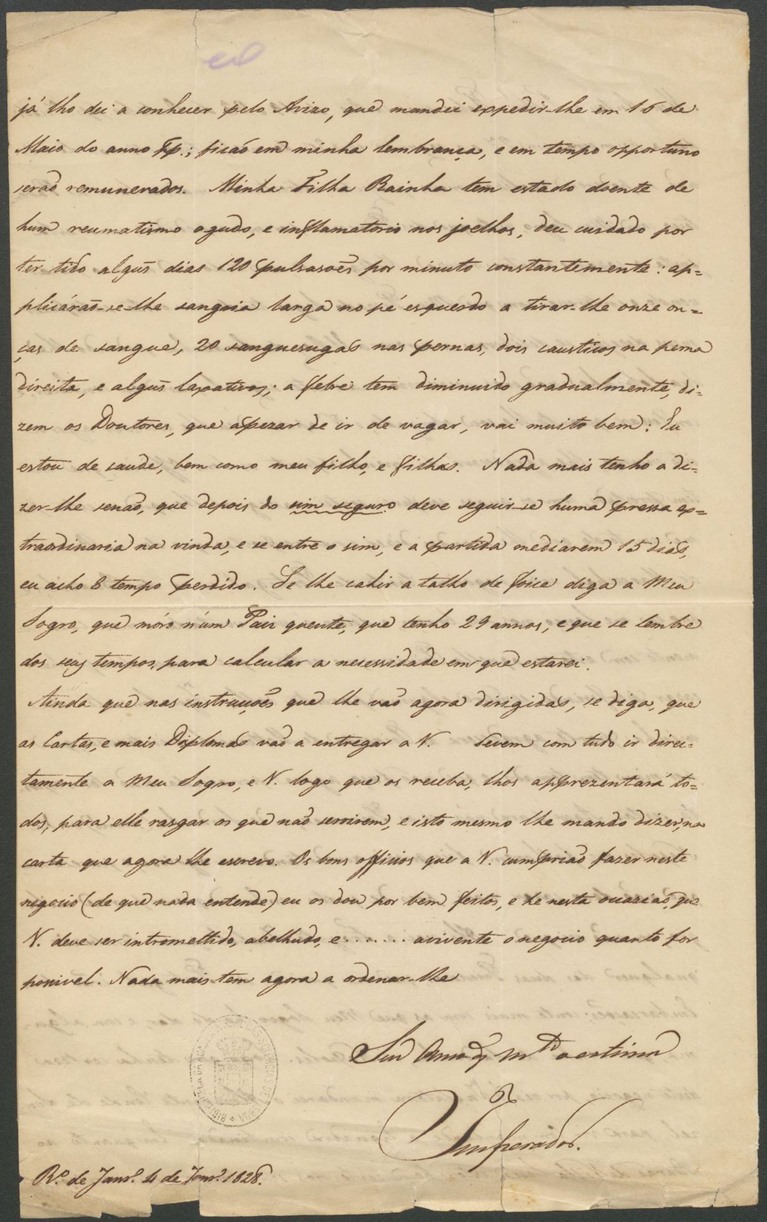 já lho dei a conhecer pelo Avizo, que mandei expedir-lhe em 16 de
Maio do anno pp.; ficaõ em minha lembrança, e em tempo opportuno
seraõ remunerados. Minha Filha Rainha tem estado doente de
hum reumatismo agudo, e inflamatorio nos joelhos, deu cuidado por
ter tido algũs dias 120 pulsasoẽs por minuto constantemente: ap=
plicáraõ-se-lhe sangria larga no pé esquerdo a tirar-lhe onze on=
ças de sangue, 20 sanguesugas nas pernas, dois causticos na perna
direita, e algũs laxativos; a febre tem diminuido gradualmente, di=
zem os Doutores, que apezar de ir de vagar, vai muito bem: Eu
estou de saude, bem como meu filho, e filhas. Nada mais tenho a di=
zer-lhe senaõ, que depois do sim seguro deve seguir-se huma pressa ex=
traordinaria na vinda, e se entre o sim, e a partida mediarem 15 dias,
eu acho 8 tempo perdido. Se lhe cahir a talho de foice diga a Meu
Sogro, que móro n'um Paiz quente, que tenho 29 annos, e que se lembre
dos seus tempos, para calcular a necessidade em que estarei.
Ainda que nas instrucçoẽs que lhe vaõ agora dirigidas, se diga, que
as Cartas, e mais Diplomas vaõ a entregar a V. devem com tudo ir direc=
tamente a Meu Sogro, e V. logo que os receba, lhos apprezentará to=
dos, para elle rasgar os que naõ servirem, e isto mesmo lhe mando dizer, na
carta que agora lhe escrevo. Os bons officios que a V. cumpriaõ fazer neste
negocio (de que nada entende) eu os dou por bem feitos, e he nesta ocaziaõ, que
V. deve ser intromettido, abelhudo, e ....... avivente o negocio quanto for
possivel. Nada mais tem agora a ordenar-lhe
Seu Amo q mto o estima
O
Imperador.
Ro. de Janro. 4 de Janro. 1828.